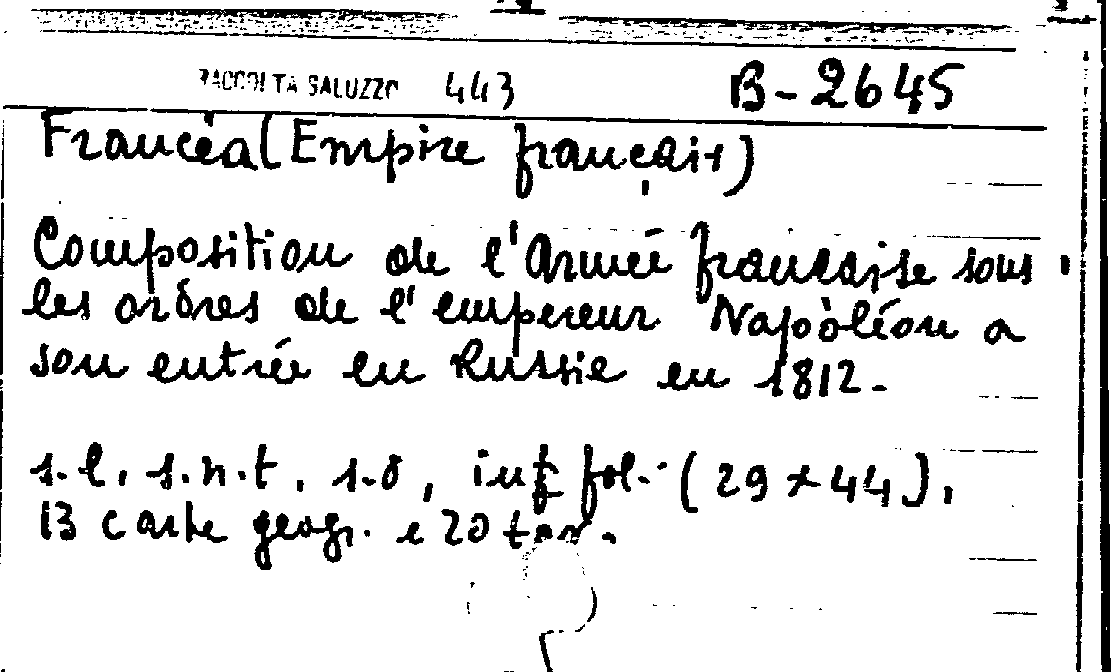 RACCOLTA SALUZZO 443 B-2645
Francea (Empire français)
Composition de l'Armée française sous
les ordres de l'empereur Napoléon a
son entrée en Russie en 1812-
s.l. s.n.t. s.d, in fol. (29×44).
13 carte geogr. e 20 tav.